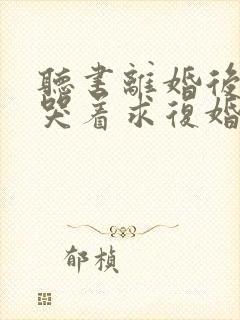 聽書離婚後
哭着求復婚
郁楨